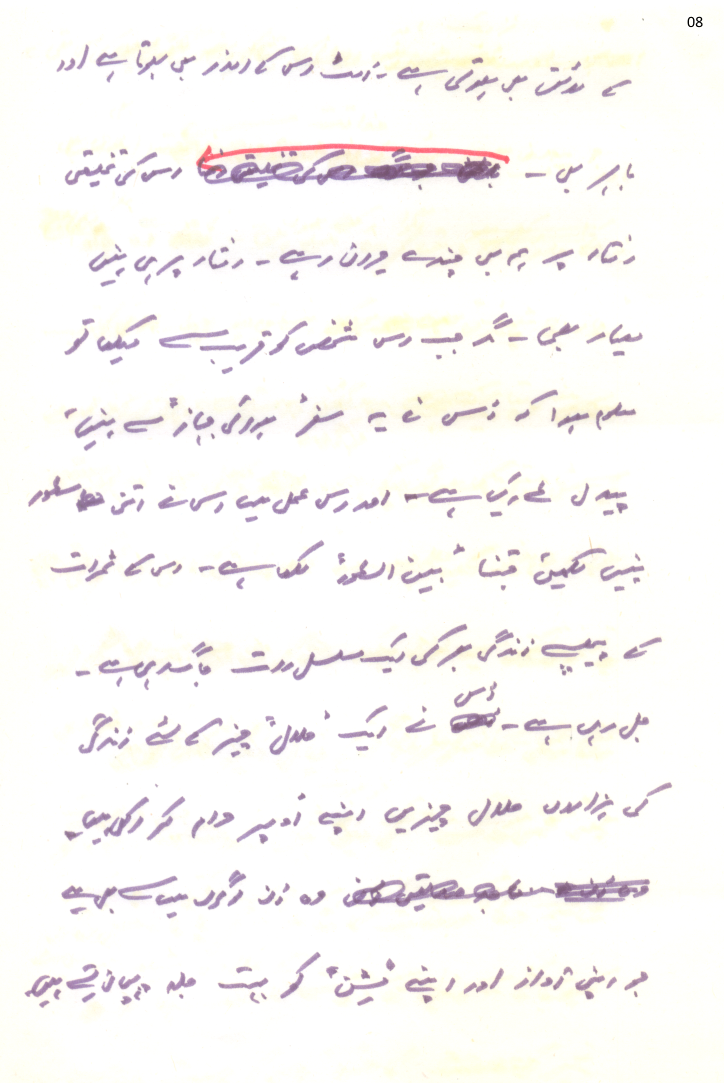 08
کے مدفن بھی ہوتی ہے۔ اس کے اندر بھی ہوتا ہے اور
باہر بھی۔ اس کی تخلیقی
رفتار پر ہم بھی چندے حیران رہے۔ رفتار پر ہی نہیں
معیار بھی۔ مگر جب اس شخص کو قریب سے دیکھا تو
معلوم ہوا کہ اُس نے یہ سفر "ہوائی جہاز" سے نہیں،
پیدل طے کیا ہے۔ اور اس عمل میں اس نے اتنی سطور
نہیں لکھیں جتنا "بین السطور" لکھا ہے۔ اس کے ثمرات
کے پیچھے زندگی بھر کی ایک مسلسل رات جاگ رہی ہے۔
جل رہی ہے۔ اُس نے ایک "حلال" چیز کے لئے زندگی
کی ہزاروں حلال چیزیں اپنے اُوپر حرام کر رکھی ہیں۔
وہ اُن لوگوں میں سے بھی ہے
جو اپنی آواز اور اپنے "مشن" کو بہت جلد پہچان لیتے ہیں۔